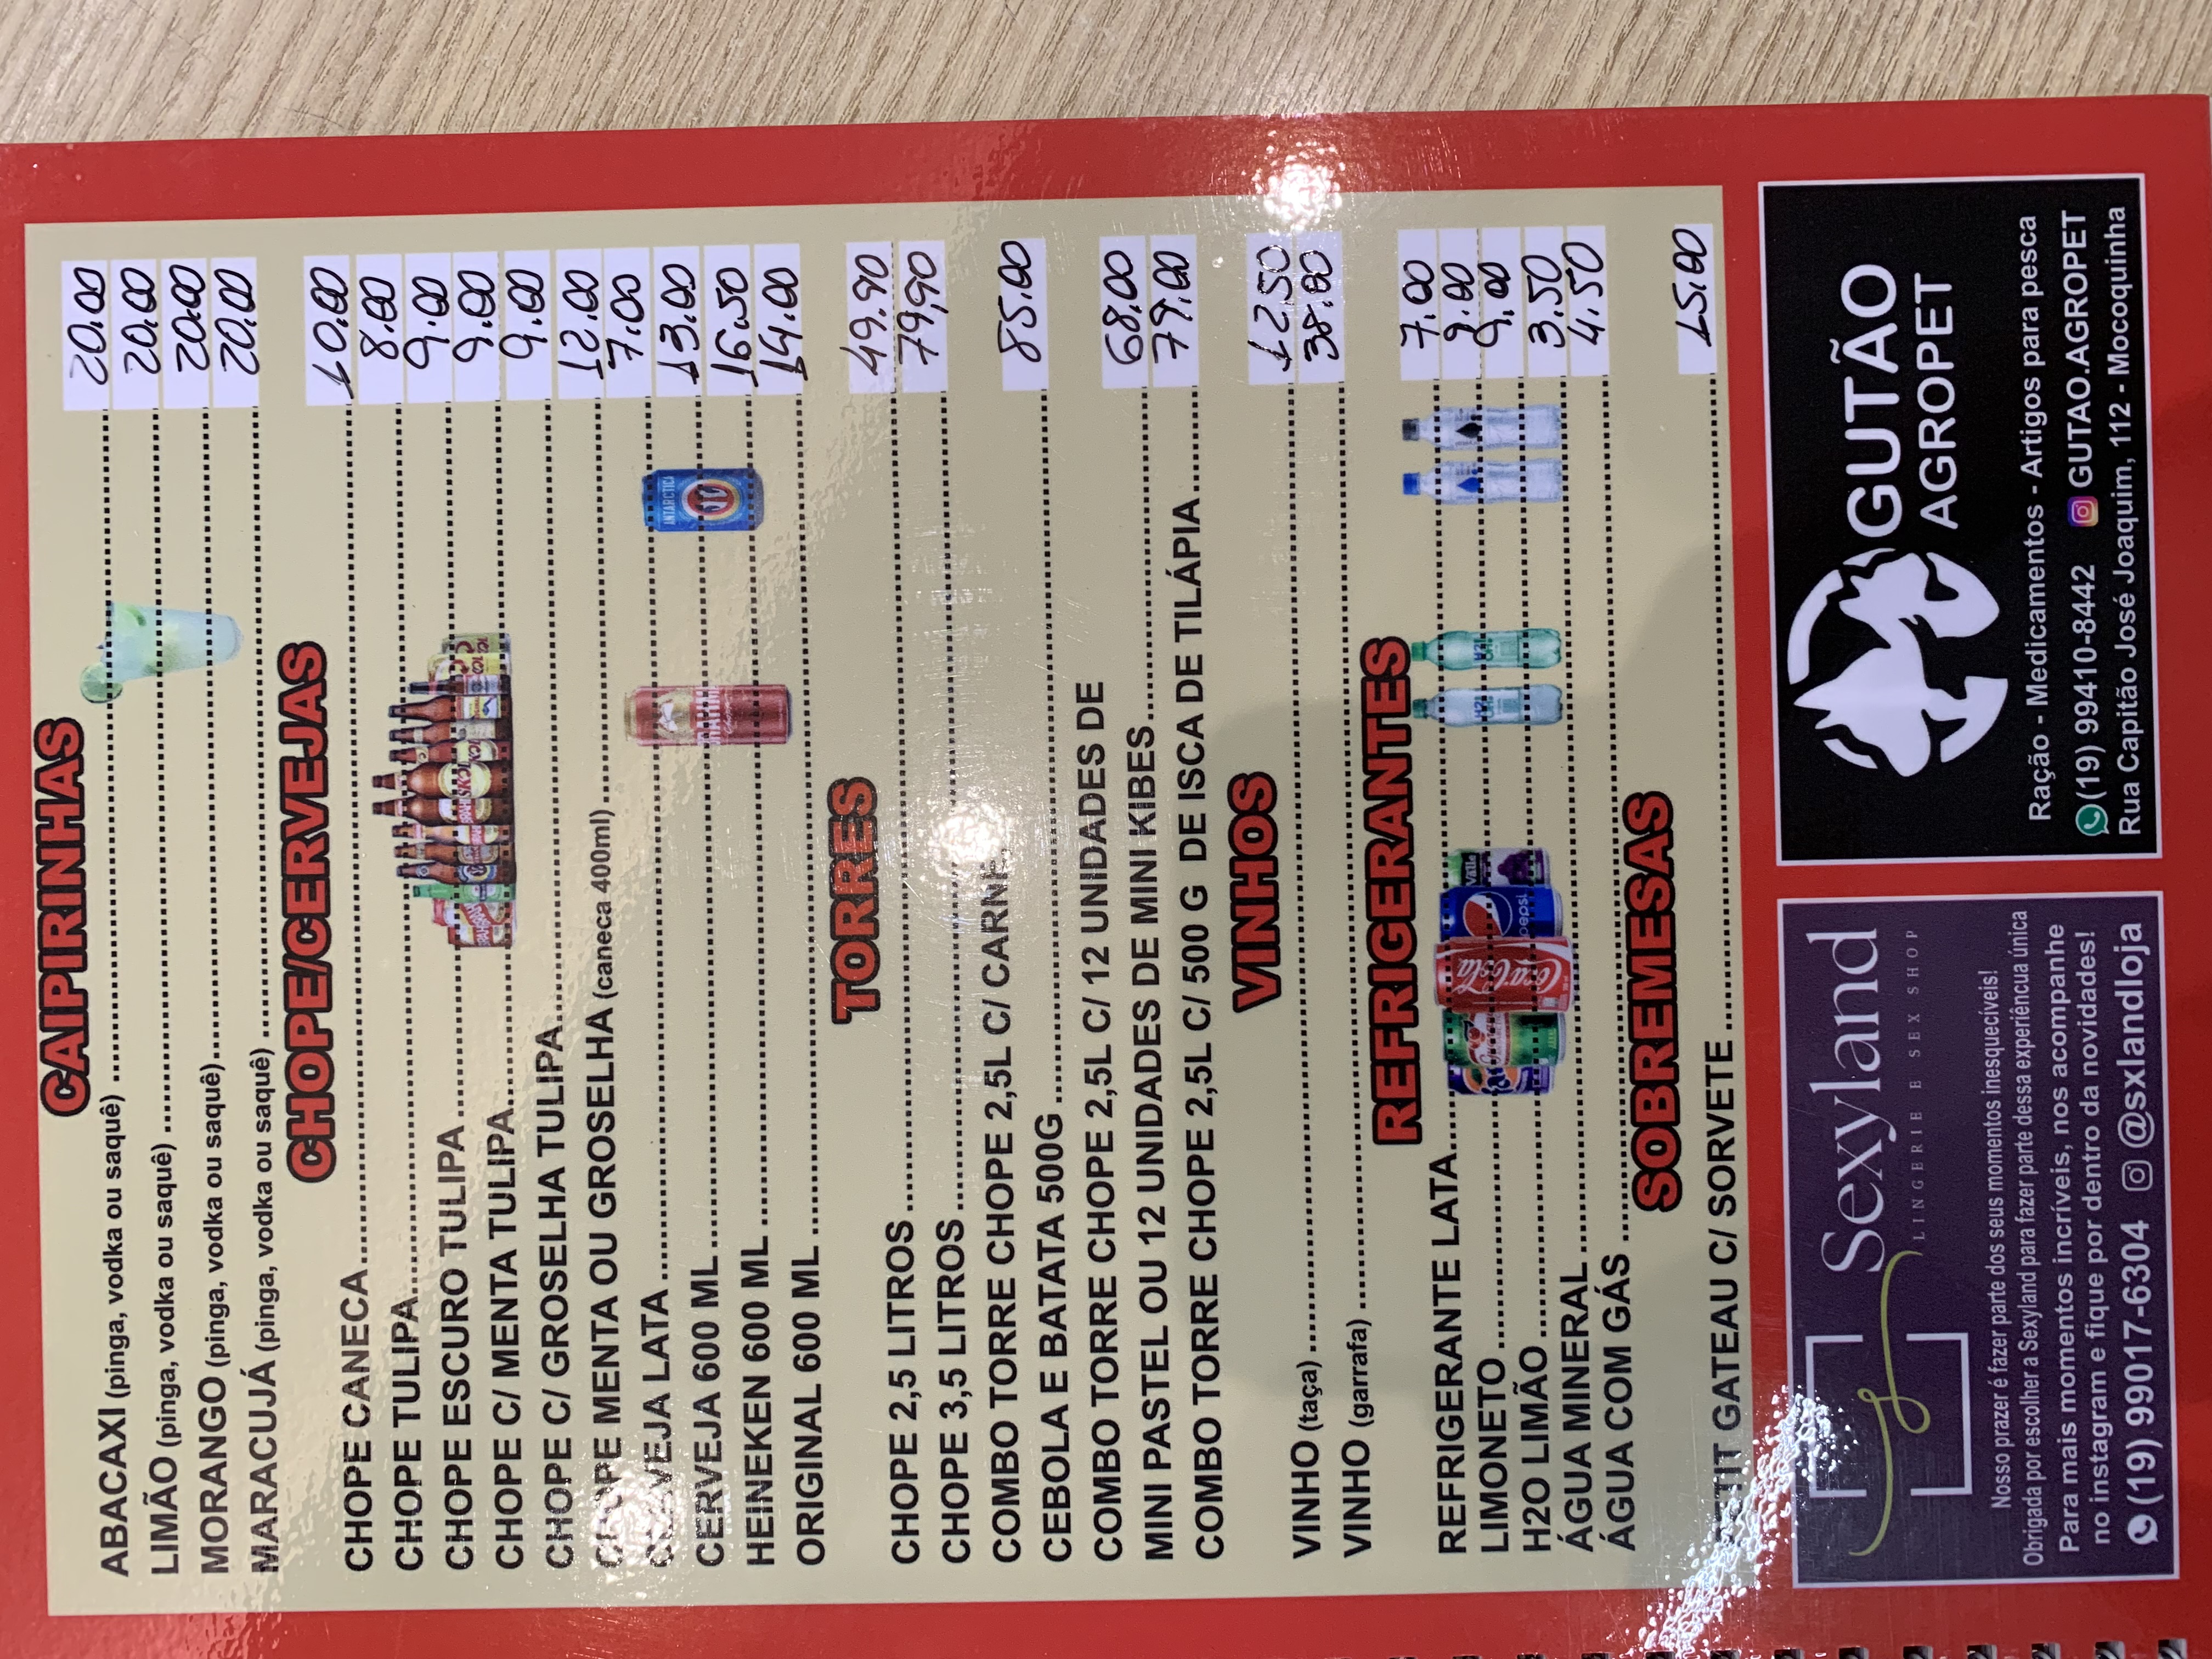 CAIPIRINHAS
ABACAXI (pinga, vodka ou saquê) 20.00
LIMÃO (pinga, vodka ou saquê) 20.00
MORANGO (pinga, vodka ou saquê) 20.00
MARACUJÁ (pinga, vodka ou saquê) 20.00
CHOPE/CERVEJAS
CHOPE CANECA 10.00
CHOPE TULIPA 8.00
CHOPE ESCURO TULIPA 9.00
CHOPE C/ MENTA TULIPA 9.00
CHOPE C/ GROSELHA TULIPA 9.00
CHOPE MENTA OU GROSELHA (caneca 400ml) 12.00
CERVEJA LATA 7.00
CERVEJA 600 ML 13.00
HEINEKEN 600 ML 16.50
ORIGINAL 600 ML 14.00
TORRES
CHOPE 2,5 LITROS 49.90
CHOPE 3,5 LITROS 79,90
COMBO TORRE CHOPE 2,5L C/ CARNE,
CEBOLA E BATATA 500G 85.00
COMBO TORRE CHOPE 2,5L C/ 12 UNIDADES DE
MINI PASTEL OU 12 UNIDADES DE MINI KIBES 68,00
COMBO TORRE CHOPE 2,5L C/ 500 G DE ISCA DE TILÁPIA 79.00
VINHOS
VINHO (taça) 12,50
VINHO (garrafa) 38.00
REFRIGERANTES
REFRIGERANTE LATA 7.00
LIMONETO 9.00
H2O LIMÃO 9.00
ÁGUA MINERAL 3.50
ÁGUA COM GÁS 4.50
SOBREMESAS
PETIT GATEAU C/ SORVETE 15.00
Sexyland
LINGERIE E SEX SHOP
Nosso prazer é fazer parte dos seus momentos inesquecíveis!
Obrigada por escolher a Sexyland para fazer parte dessa experiêncua única
Para mais momentos incríveis, nos acompanhe
no instagram e fique por dentro da novidades!
(19) 99017-6304 @sxlandloja
GUTÃO
AGROPET
Ração - Medicamentos - Artigos para pesca
(19) 99410-8442 GUTAO.AGROPET
Rua Capitão José Joaquim, 112 - Mocoquinha
SKOL
ANTARCTICA
BRAHMA
Coca-Cola
pepsi
Valle